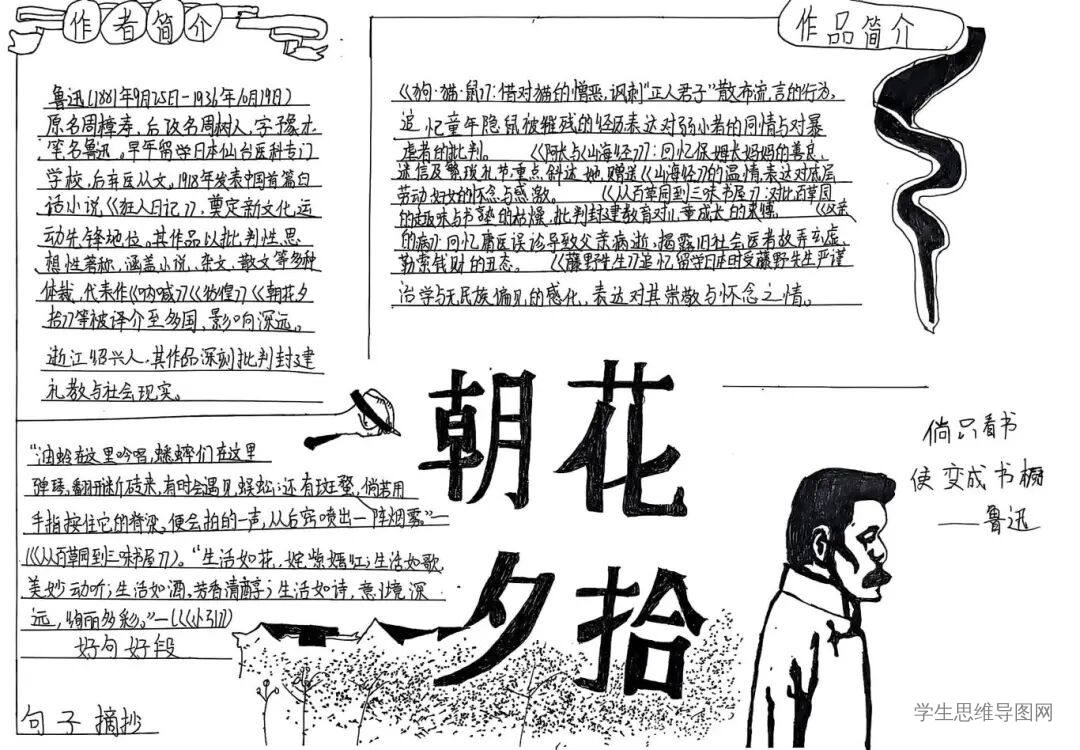 作者简介
鲁迅(1881年9月25日-1936年10月19日)
原名周樟寿，后改名周树人，字予豫才，
笔名鲁迅。早年留学日本仙台医科专门
学校，后弃医从文。1918年发表中国首篇白
话小说《狂人日记》，奠定新文化运
动先锋地位。其作品以批判性思
想性著称，涵盖小说、杂文、散文等多种
体裁，代表作《呐喊》《彷徨》《朝花夕
拾》等被译介至多国，影响深远。
浙江绍兴人，其作品深刻批判封建
礼教与社会现实。
作品简介
《狗·猫·鼠》：借对猫的憎恶，讽刺"正人君子"散布流言的行为，
追忆童年隐鼠被摧残的经历表达对弱小者的同情与对暴
虐者的批判。《阿长与《山海经》》：回忆保姆长妈妈的善良、
迷信及繁琐礼节，重点斜达她赠送《山海经》的温情，表达对底层
劳动妇女的怀念与感激。《从百草园到三味书屋》：对比百草园
的趣味与书塾的枯燥，批判封建教育对儿童成长的束缚。《父亲
的病》：回忆庸医误诊导致父亲病逝，揭露旧社会医者故弄玄虚、
勒索钱财的丑态。《藤野先生》追忆留学日本时受藤野先生严谨
治学与无民族偏见的感化，表达对其崇敬与怀念之情。
朝花
夕拾
倘只看书
便变成书橱
——鲁迅
"油蛉在这里吟唱，蟋蟀们在这里
弹琴，翻开断砖来，有时会遇见蜈蚣；还有斑蝥，倘若用
手指按住它的脊梁，便会拍的一声，从后窍喷出一阵烟雾"—
《从百草园到三味书屋》。"生活如花，姹紫嫣红；生活如歌，
美妙动听；生活如酒，芳香清醇；生活如诗，意境深
远，绚丽多彩。"—《《小引》》
好句好段
句子摘抄
学生思维导图网